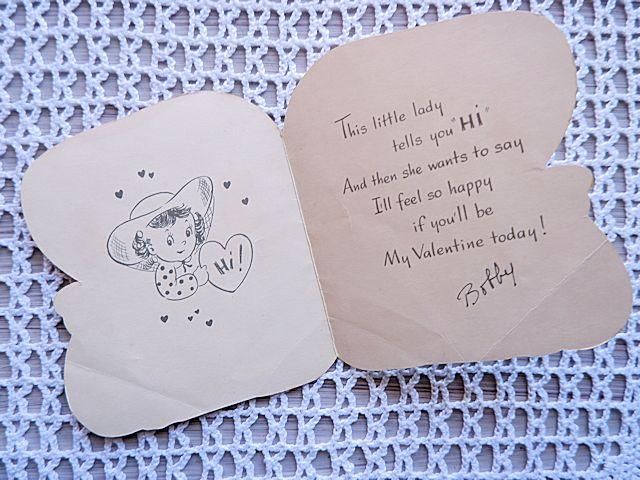 Hi!
This little lady
tells you "Hi"
And then she wants to say
I'll feel so happy
if you'll be
My Valentine today!
Bobby